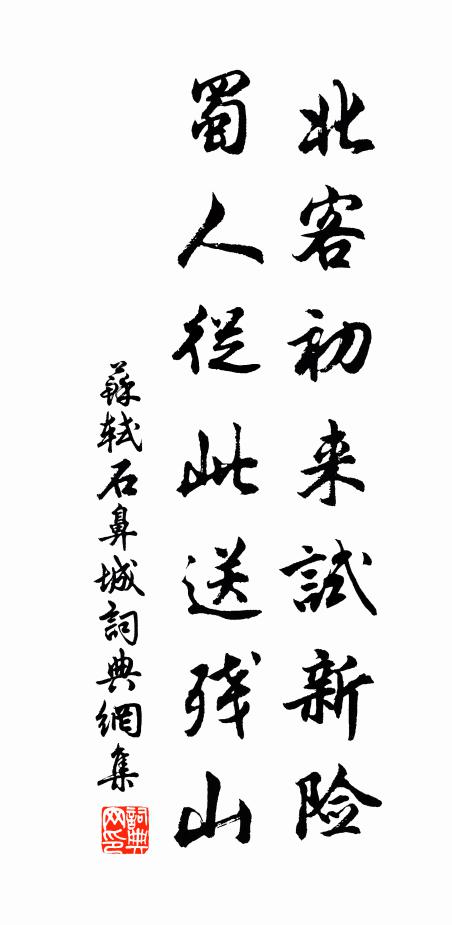 北客初来試新险
蜀人從此送残山
蘇軾石鼻城詞典網集
詞典网印